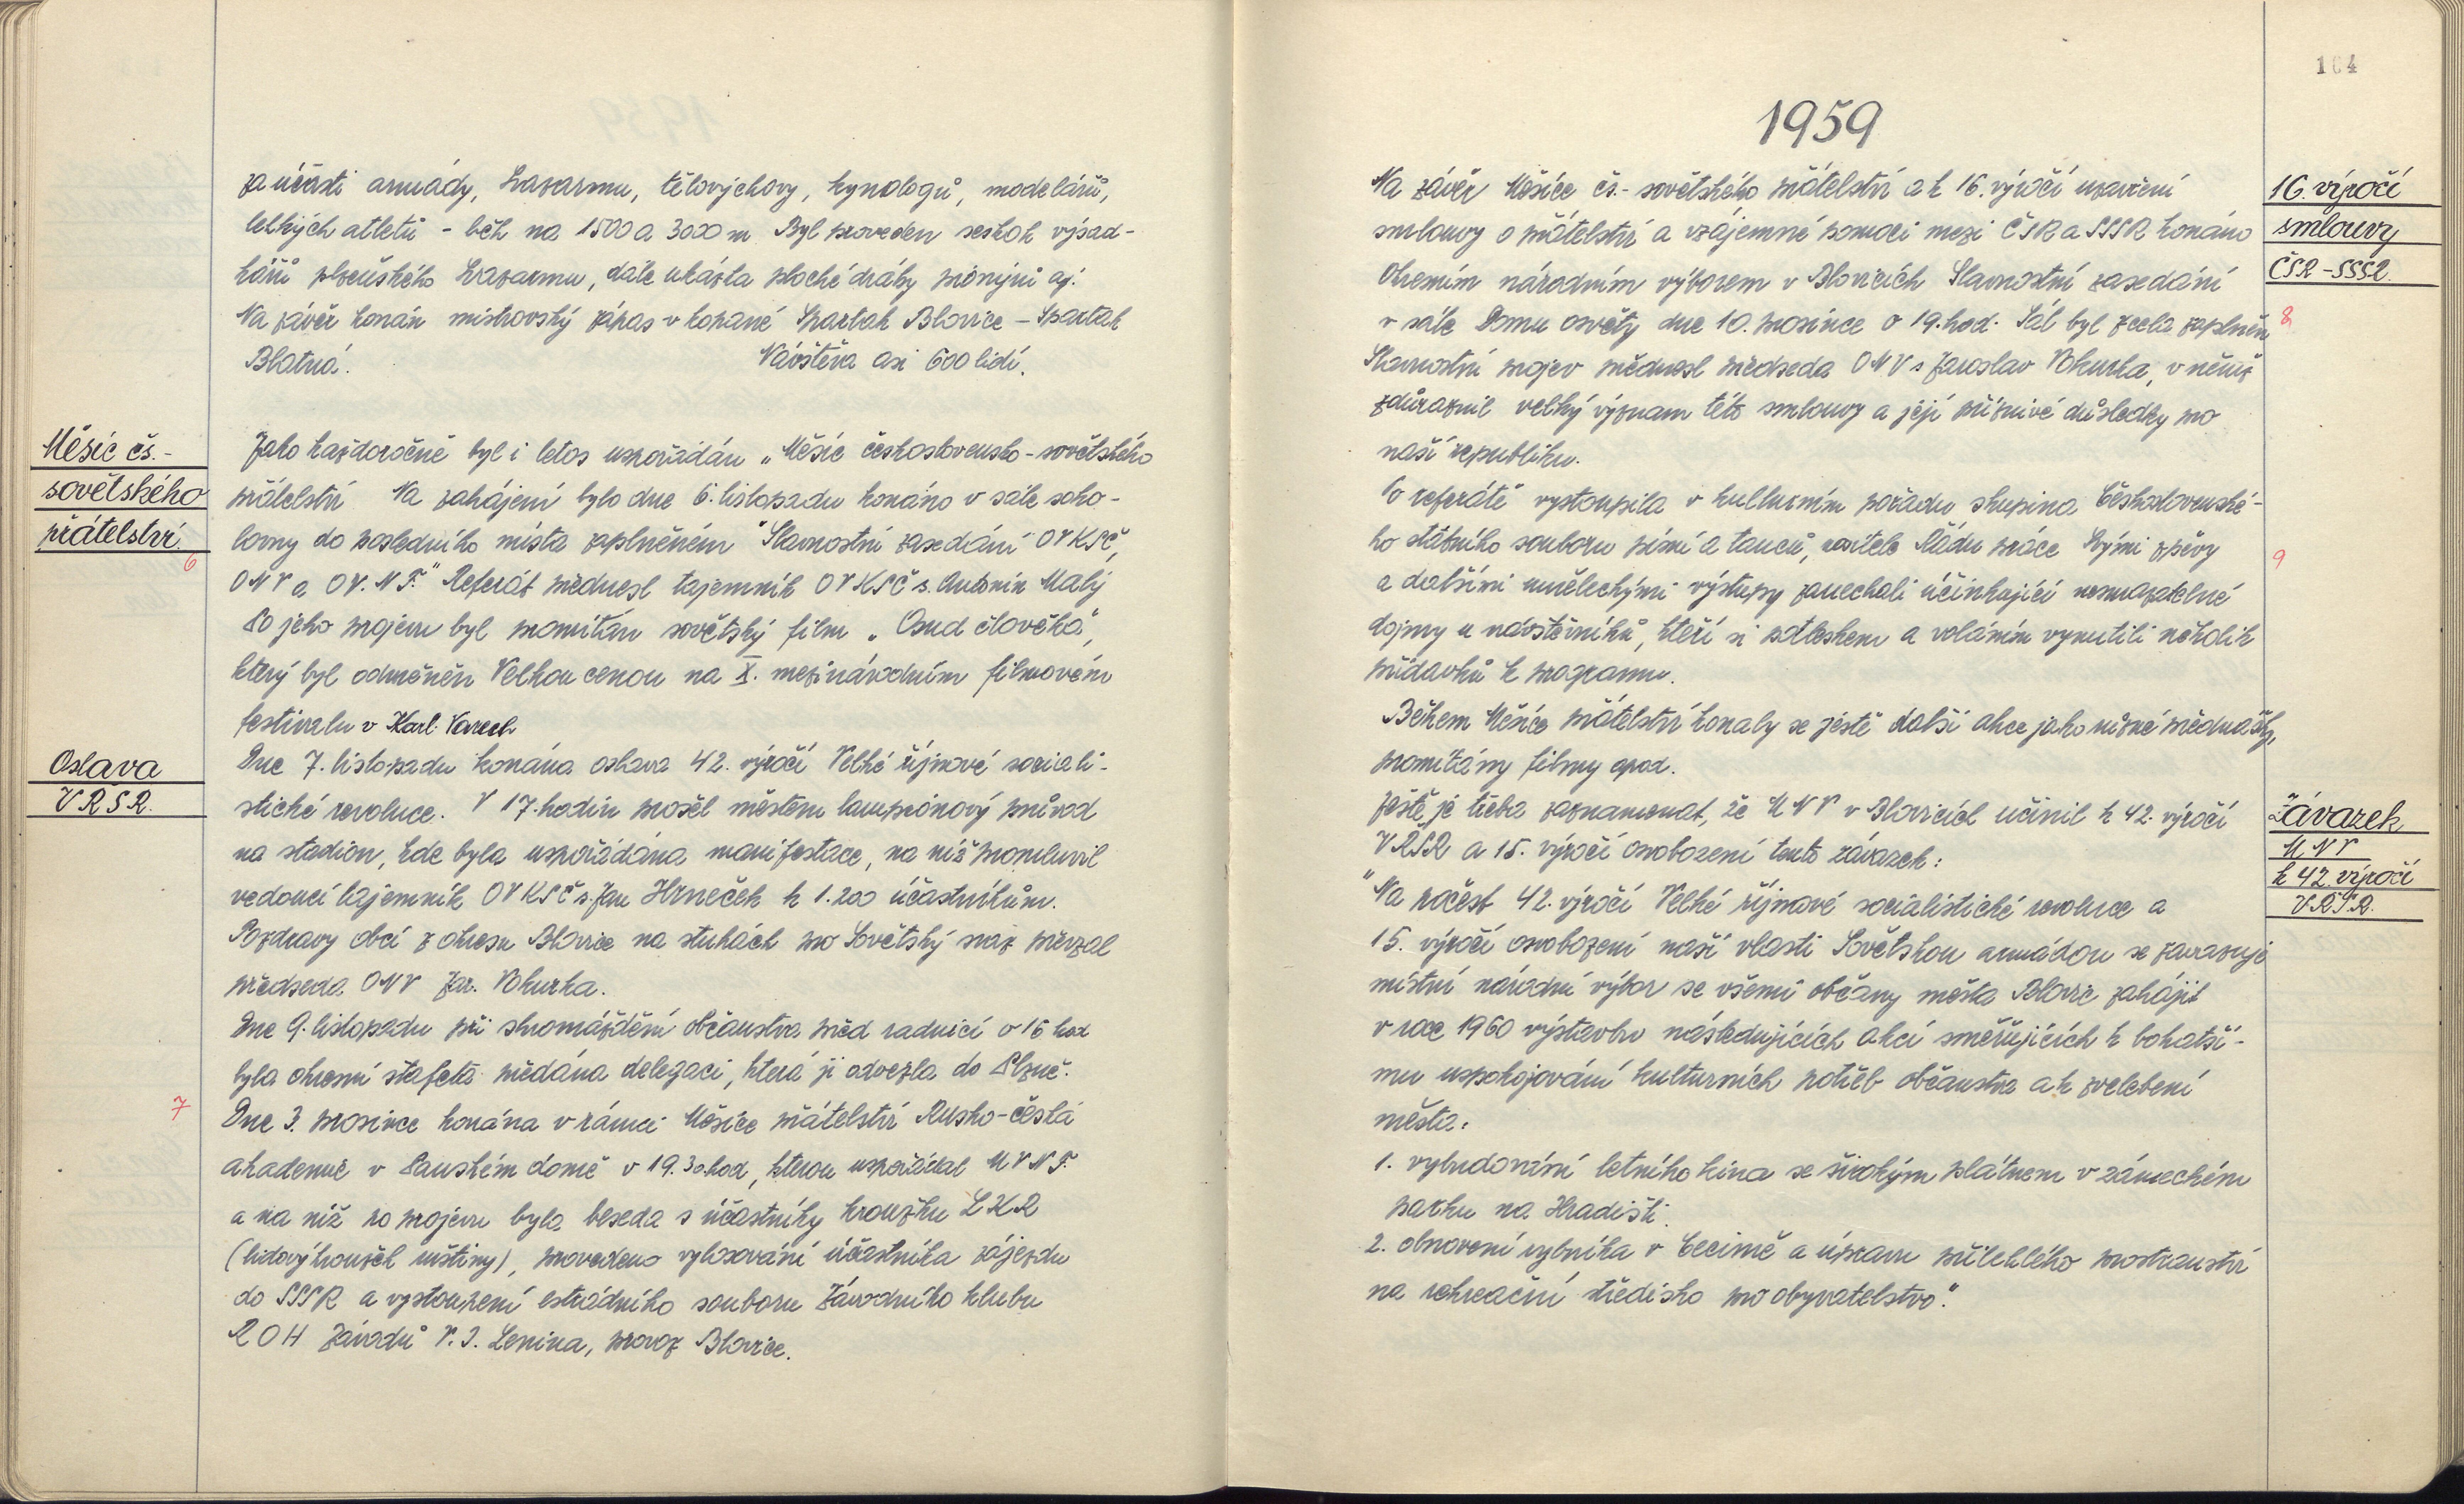 za účásti armády, Svazarmu, tělovýchovy, kynologů, modelářů,
lehkých atletů - běh na 1500 a 3000 m Byl proveden seskok výsad-
kářů plzeňského Svazarmu, dále ukázka ploché dráhy pionýrů aj.
Na závěr konán mistrovský zápas v kopané Spartak Blovice - Spartak
Blatná. Návštěva asi 600 lidí.
Měsíc čs.-
sovětského
přátelství.
6
Jako každoročně byl i letos uspořádán „Měsíc československo-sovětského
přátelství Na zahájení bylo dne 6. listopadu konáno v sále soko-
lovny do posledního místa zaplněném "Slavnostní zasedání OV KSČ,
ONV a OV. N.F." Referát přednesl tajemník OV KSČ s. Antonín Malý
Po jeho projevu byl promítán sovětský film „Osud člověka",
který byl odměněn Velkou cenou na X. mezinárodním filmovém
festivalu v Karl. Varech
Oslava
VŘSR.
Dne 7. listopadu konána oslava 42. výročí Velké říjnové sociali-
stické revoluce. V 17. hodin prošel městem lampionový průvod
na stadion, kde byla uspořádána manifestace, na níž promluvil
vedoucí tajemník OV KSČ s. Jan Hrneček k 1.200 účastníkům.
Pozdravy obcí z okresu Blovice na stuhách pro Sovětský svaz převzal
předseda ONV Jar. Vokurka.
Dne 9. listopadu při shromáždění občanstva před radnicí v 16 hod
byla okresní štafeta předána delegaci, která ji odvezla do Plzně.
7
Dne 3. prosince konána v rámci Měsíce přátelství Rusko-česká
akademie v Panském domě v 19.30 hod, kterou uspořádal MVNF.
a na níž po projevu byla beseda s účastníky kroužku LKR
(lidový kroužek ruštiny), provedeno vylosování účastníka zájezdu
do SSSR a vystoupení estrádního souboru Závodního klubu
ROH Závodů V. I. Lenina, provoz Blovice.
104
1959
16. výročí
smlouvy
ČSR - SSSR.
8
Na závěr Měsíce čs.-sovětského přátelství a k 16. výročí uzavření
smlouvy o přátelství a vzájemné pomoci mezi ČSR a SSSR konáno
Okresním národním výborem v Blovicích Slavnostní zasedání
v sále Domu osvěty dne 10. prosince v 19. hod. Sál byl zcela zaplněn
Slavnostní projev přednesl předseda ONV s Jaroslav Vokurka, v němž
zdůraznil velký význam této smlouvy a její příznivé důsledky pro
naši republiku.
Po referátě vystoupila v kulturním pořadu skupina Československé-
ho státního souboru písní a tanců, nositele Řádu práce Svými zpěvy
9
a dalšími uměleckými výstupy zanechali účinkující nesmazatelné
dojmy u návštěvníků, kteří si potleskem a voláním vynutili několik
přídavků k programu.
Během Měsíce přátelství konaly se ještě další akce jako různé přednášky,
promítány filmy apod.
Závazek
MNV
k 42. výročí
VŘSR.
Ještě je třeba zaznamenat, že MNV v Blovicích učinil k 42. výročí
VŘSR a 15. výročí osvobození tento závazek:
"Na počest 42. výročí Velké říjnové socialistické revoluce a
15. výročí osvobození naší vlasti Sovětskou armádou se zavazuje
místní národní výbor se všemi občany města Blovic zahájit
v roce 1960 výstavbu následujících akcí směřujících k bohatší-
mu uspokojování kulturních potřeb občanstva a k zvelebení
města:
1. vybudování letního kina se širokým plátnem v zámeckém
parku na Hradišti.
2. obnovení rybníka v Cecimě a úpravu přilehlého prostranství
na rekreační středisko pro obyvatelstvo."